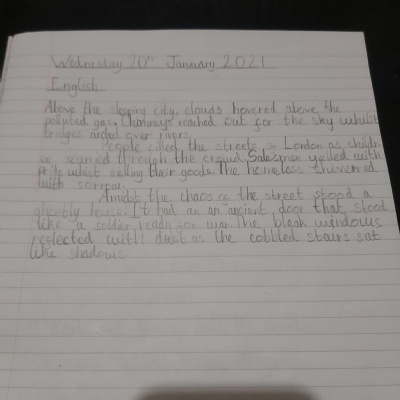 Wednesday 20th January 2021
English
Above the sleeping city, clouds hovered above the
polluted gas. Chimneys reached out for the sky whilst
bridges arded over rivers.
People filled the streets of London as childr
en scurried through the crowd. Salesmen yelled with
pride whilst selling their goods. The homeless shivered
with sorrow.
Amidst the chaos of the street stood a
ghostly house. It had an an ancient door that stood
like a soldier ready for war. The bleak windows
reflected with dust as the cobbled stairs sat
like shadows.